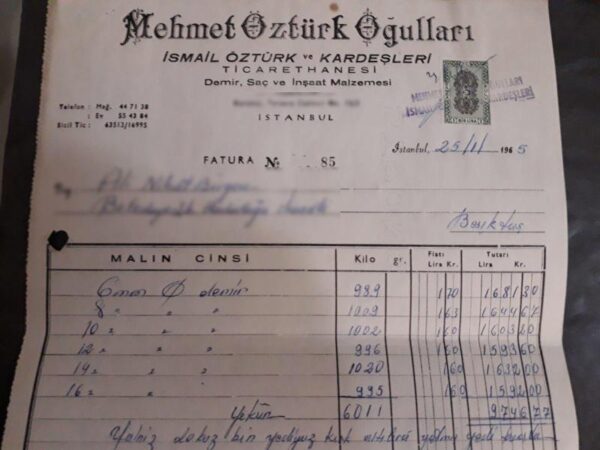 Mehmet Öztürk Oğulları
İSMAİL ÖZTÜRK ve KARDEŞLERİ
TİCARETHANESİ
Demir, Saç ve İnşaat Malzemesi
İSTANBUL
Telefon : Mağ. 44 71 38
: Ev 55 43 84
Sicil Tic : 63512/16995
FATURA № 85
İstanbul, 25/11 1965
Beşiktaş
MALIN CİNSİ Kilo gr. Fiatı Lira Kr. Tutarı Lira Kr.
6 mm Ø demir 989 170 1681 30
8 " " " 1009 163 1644 67
10 " " " 1002 160 1603 20
12 " " " 996 160 1593 60
14 " " " 1020 160 1632 00
16 " " " 995 160 1592 00
Yekün 6011 9746 77
Yalnız dokuz bin yediyüz kırk altı lira yetmiş yedi kuruştur